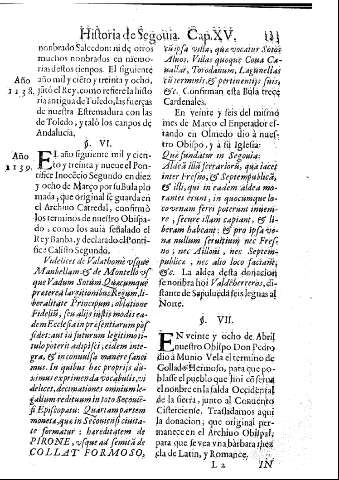 Historia de Segouia. Cap. XV, 123
nonbrado Salcedon: ni de otros
muchos nonbrados en memo-
rias destos tienpos. El siguiente
Año
1138.
año mil y ciēto y treinta y ocho,
jūtò el Rey, como refiere la histo
ria antigua de Toledo, las fuerças
de nuestra Estremadura con las
de Toledo, y talò los canpos de
Andalucia,
§. VI.
Año
1139.
EL año siguiente mil y cien-
to y treinta y nueue el Pon-
tifice Inocēcio Segundo en diez
y ocho de Março por su Bula plo
mada, que original se guarda en
el Archiuo Catredal, confirmò
los terminos de nuestro Obispa-
do, como los auia señalado el
Rey Banba, y declarado el Ponti-
fice Calisto Segundo.
Videlicet de Valathome vsque
Mambellam: & de Montello vs
que Vadum Sotum. Quæcunque
præterea largitionibus Regum, li-
beralitate Principum, oblatione
Fidelium, seu alijs iustis modis ea-
dem Ecclesia in præsentiarum pos
sidet: aut in futurum legitimo ti-
tulo poterit adipisci, eadem inte-
gra, & inconuulsa manere sanci
mus. In quibus hæc proprijs du-
ximus exprimenda vocabulis, vi
delicet, decimationes omnium le-
galium reddituum in toto Secouiē
si Episcopatu: Quartam partem
monetæ, que in Secouiensi ciuita-
te formatur: hæreditatem de
PIRONE, vsque ad semitā de
COLLAT FORMOSO,
cū ipsa villa, quæ vocatur Sotos
Aluos. Villas quoque Coua Ca-
uallar, Torodanum, Lagunellas
cū terminis, & pertinentijs suis,
&c. Confirman esta Bula treçe
Cardenales.
En veinte y seis del mismo
mes de Março el Enperador es-
tando en Olmedo diò à nues-
tro Obispo, y à su Iglesia:
Quæ fundatur in Segouia:
Aldeā illā ferrariorū, quæ iacet
inter Fresno, & Septempublicā,
& illi, qui in eadem aldea mo-
rarent erunt, in quocumque lo-
co venam ferri poterunt inueni-
re, secure illam capiant, & li-
beram habeant: & pro ipsa ve-
na nullum seruitium nec Fres-
no, nec Aillòni, nec Septem-
publica, nec alio loco faciant,
&c. La aldea desta donacion
se nonbra hoi Valdeherreros, di-
stante de Sepulueda seis leguas al
Norte.
§. VII.
EN veinte y ocho de Abril
nuestro Obispo Don Pedro
diò à Munio Vela el termino de
Collado Hermoso, para que po-
blasse el pueblo que hoi cōserua
el nonbre en la falda Occidental
de la sierra, junto al Conuento
Cisterciense. Trasladamos aqui
la donacion; que original per-
manece en el Archiuo Obispal;
para que se vea vna bàrbara mez
cla de Latin, y Romance.
L 2 IN